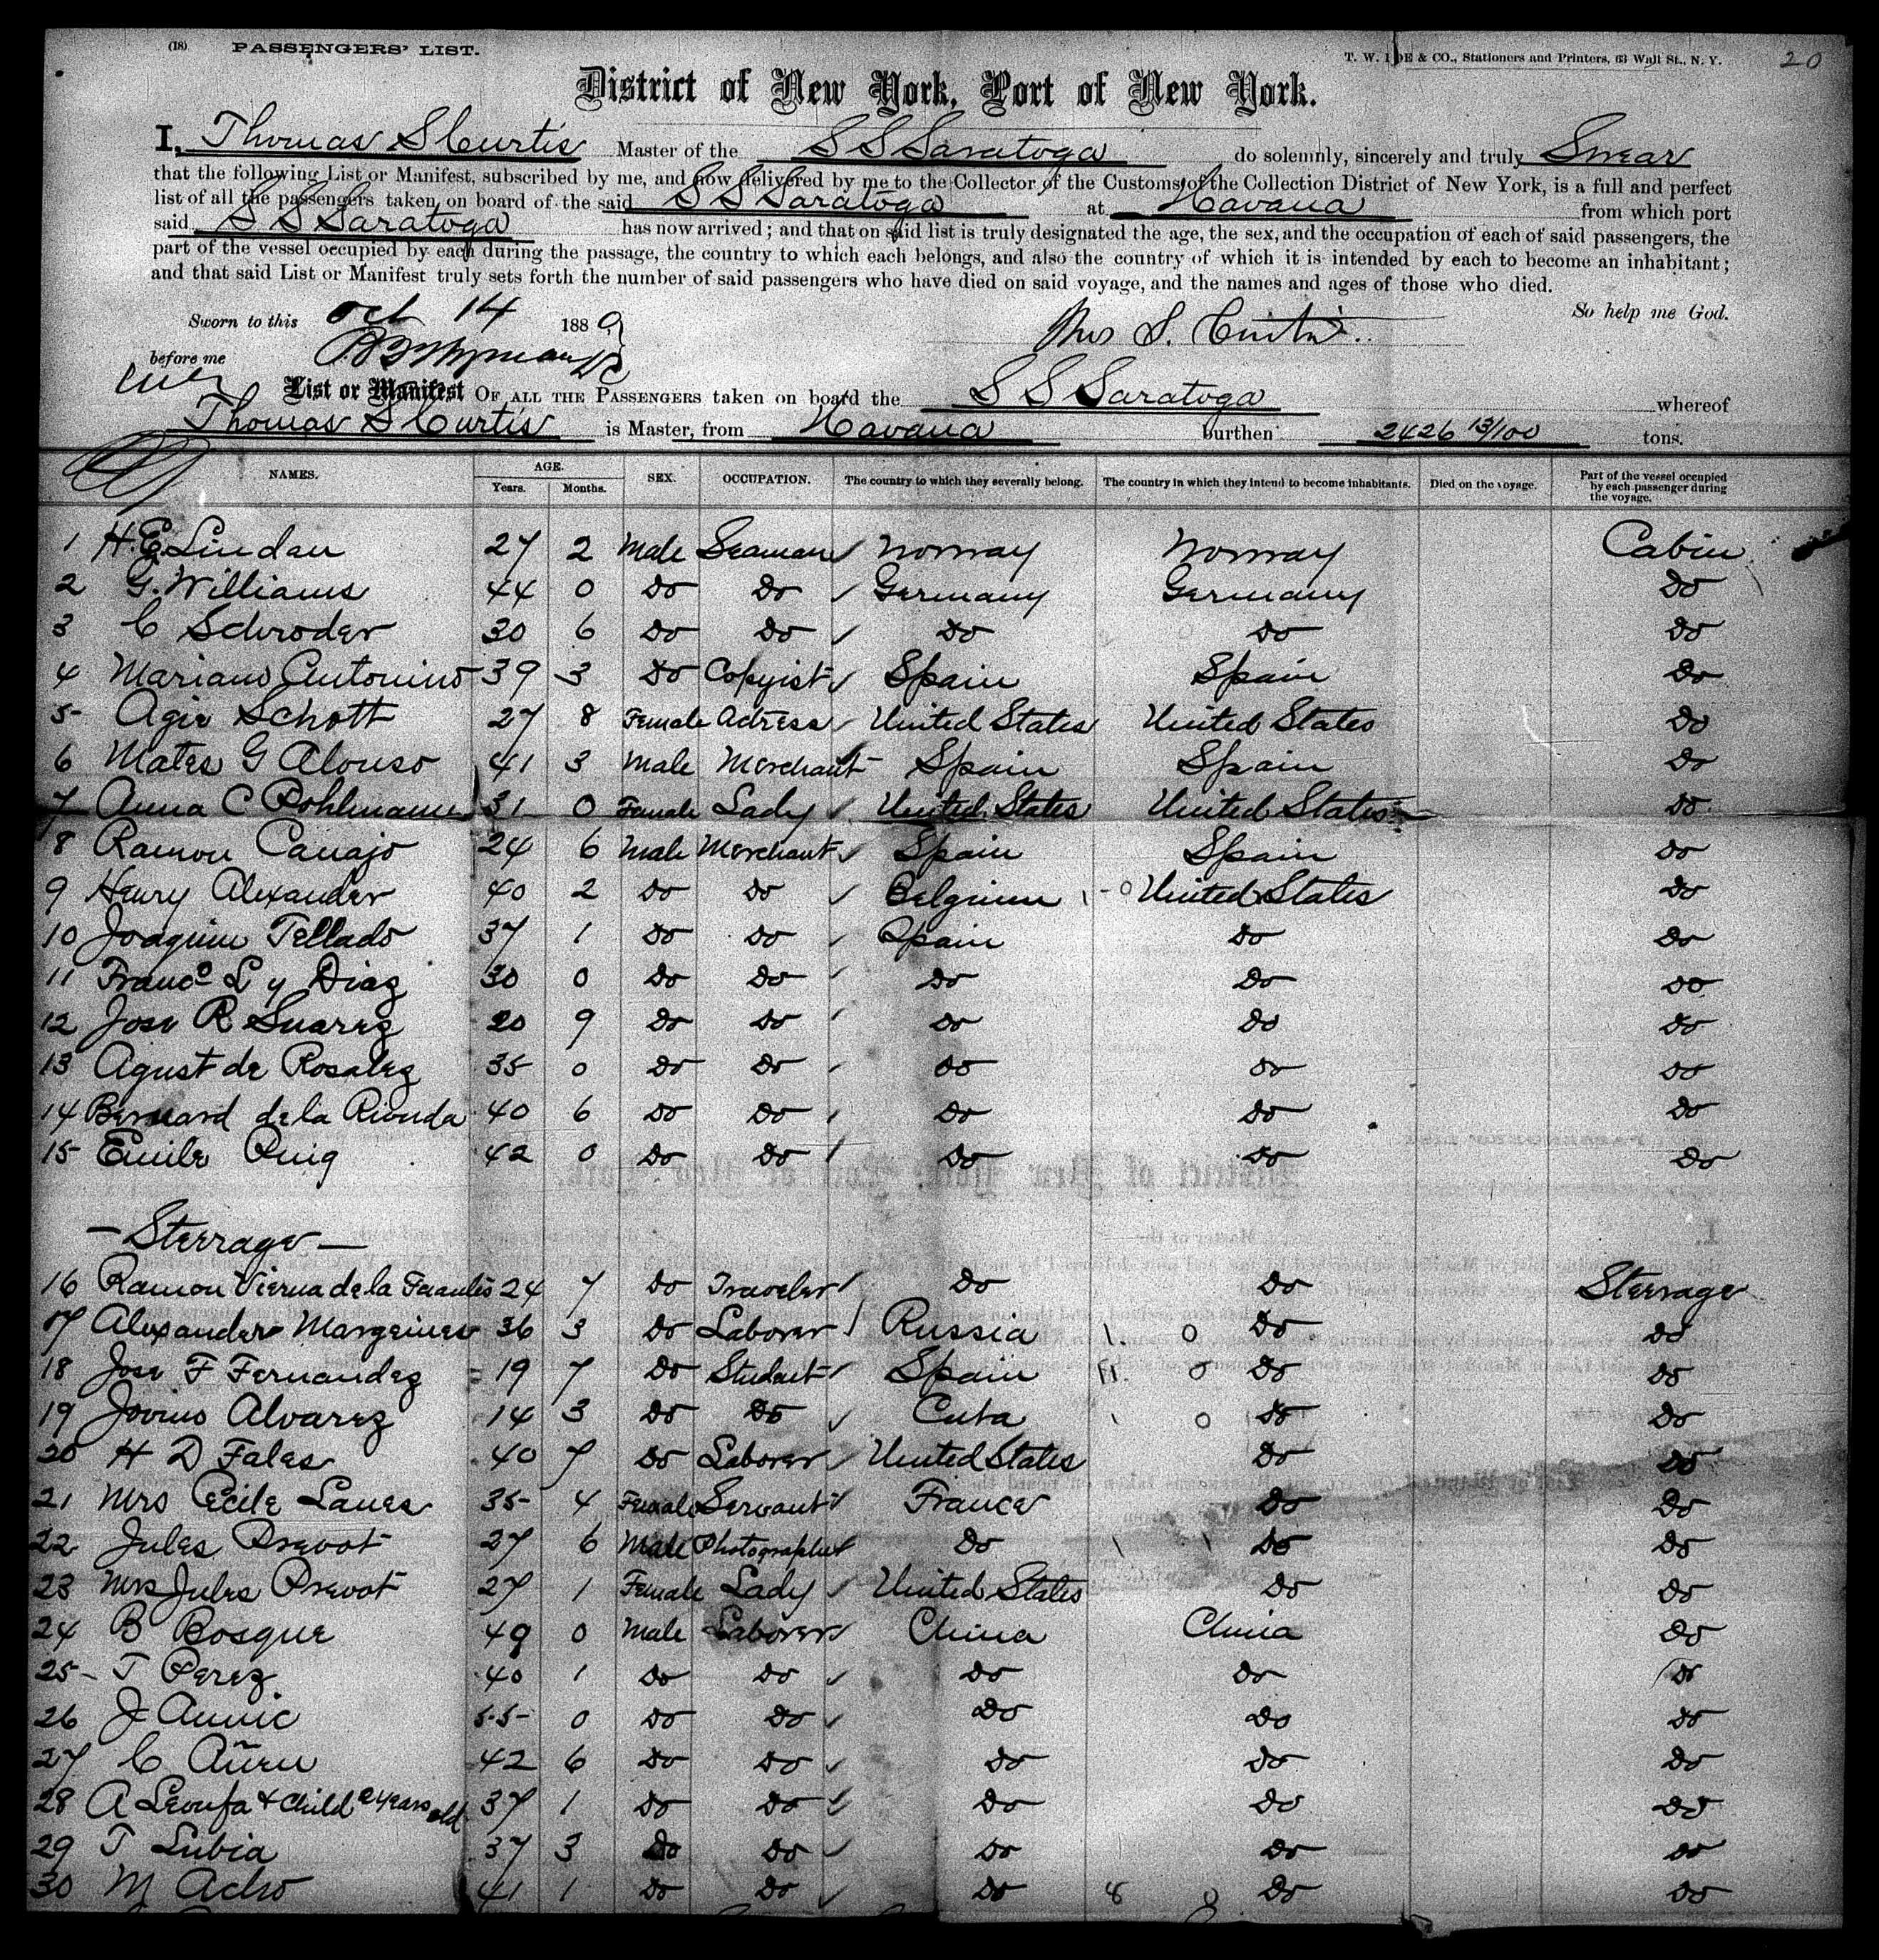 (18) PASSENGERS' LIST. T. W. IDE & CO., Stationers and Printers, 63 Wall St., N. Y. 20
District of New York, Port of New York.
I, Thomas S Curtis Master of the S S Saratoga do solemnly, sincerely and truly Swear
that the following List or Manifest, subscribed by me, and now delivered by me to the Collector of the Customs of the Collection District of New York, is a full and perfect
list of all the passengers taken on board of the said S S Saratoga at Havana from which port
said S S Saratoga has now arrived; and that on said list is truly designated the age, the sex, and the occupation of each of said passengers, the
part of the vessel occupied by each during the passage, the country to which each belongs, and also the country of which it is intended by each to become an inhabitant;
and that said List or Manifest truly sets forth the number of said passengers who have died on said voyage, and the names and ages of those who died.
Sworn to this Oct 14 1889 So help me God.
before me Thos S. Curtis
List or Manifest OF ALL THE PASSENGERS taken on board the S S Saratoga whereof
Thomas S Curtis is Master, from Havana burthen 2426 13/100 tons.
NAMES. AGE. Years. Months. SEX. OCCUPATION. The country to which they severally belong. The country in which they intend to become inhabitants. Died on the voyage. Part of the vessel occupied by each passenger during the voyage.
1 H. E. Lindau 27 2 Male Seaman Norway Norway Cabin
2 G. Williams 44 0 Do Do Germany Germany Do
3 C Schroder 30 6 Do Do Do Do Do
4 Mariano Antonino 39 3 Do Copyist Spain Spain Do
5 Agie Schott 27 8 Female Actress United States United States Do
6 Mates G Alonso 41 3 Male Merchant Spain Spain Do
7 Anna C Pohlmann 31 0 Female Lady United States United States Do
8 Ramon Canajo 24 6 Male Merchant Spain Spain Do
9 Henry Alexander 40 2 Do Do Belgium United States Do
10 Joaquim Tellado 37 1 Do Do Spain Do Do
11 Franco L y Diaz 30 0 Do Do Do Do Do
12 Jose R Suarez 20 9 Do Do Do Do Do
13 Agust de Rosalez 35 0 Do Do Do Do Do
14 Bernard de la Rionda 40 6 Do Do Do Do Do
15 Emile Puig 42 0 Do Do Do Do Do
— Sterrage —
16 Ramon Vierna de la 24 7 Do Traveler Do Do Sterrage
17 Alexander 36 3 Do Laborer Russia Do Do
18 Jose F Fernandez 19 7 Do Student Spain Do Do
19 Jovino Alvarez 14 3 Do Do Cuba Do Do
20 H D Fales 40 7 Do Laborer United States Do Do
21 Mrs Cecile Lanes 35 4 Female Servant France Do Do
22 Jules Prevot 27 6 Male Photographer Do Do Do
23 Mrs Jules Prevot 27 1 Female Lady United States Do Do
24 B Bosque 49 0 Male Laborer China China Do
25 T Perez 40 1 Do Do Do Do Do
26 J Annic 55 0 Do Do Do Do Do
27 C Añeu 42 6 Do Do Do Do Do
28 A & Child 2 years old 37 1 Do Do Do Do Do
29 T Lubia 37 3 Do Do Do Do Do
30 M Acho 41 1 Do Do Do Do Do